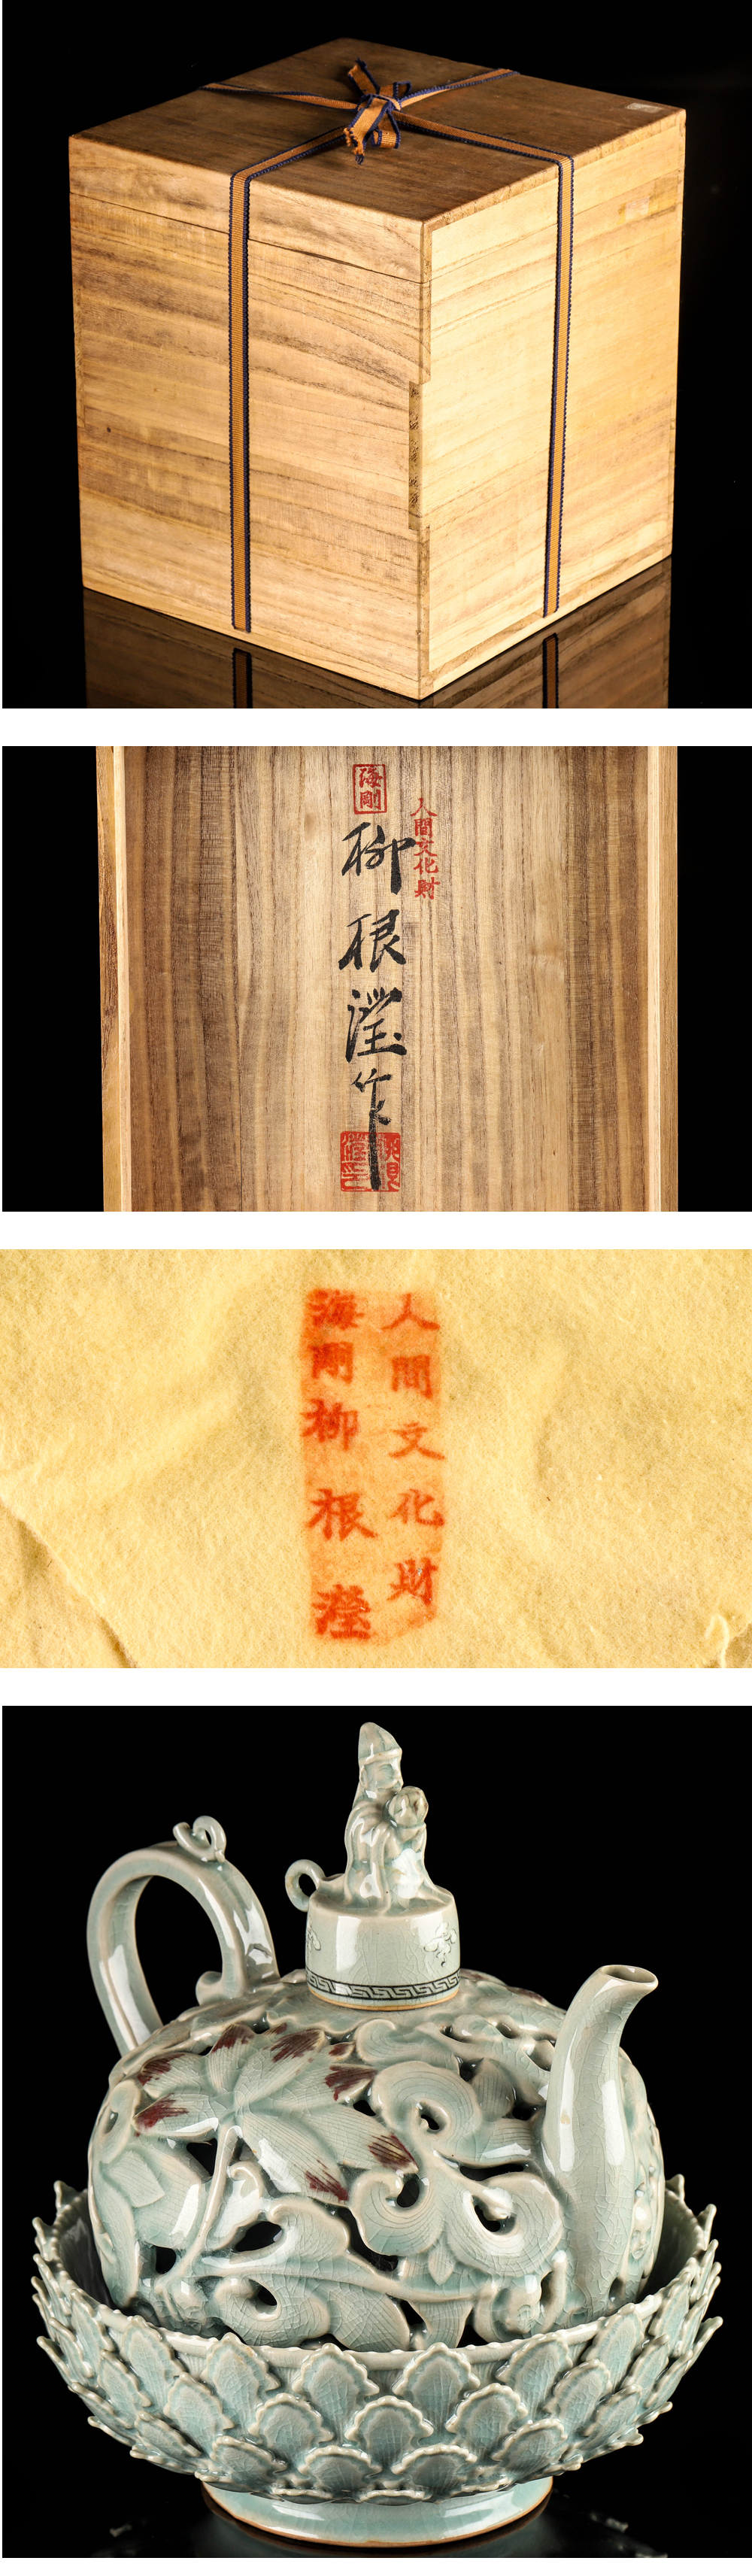 海剛
人間文化財
柳根瀅作
人間文化財
海剛柳根瀅